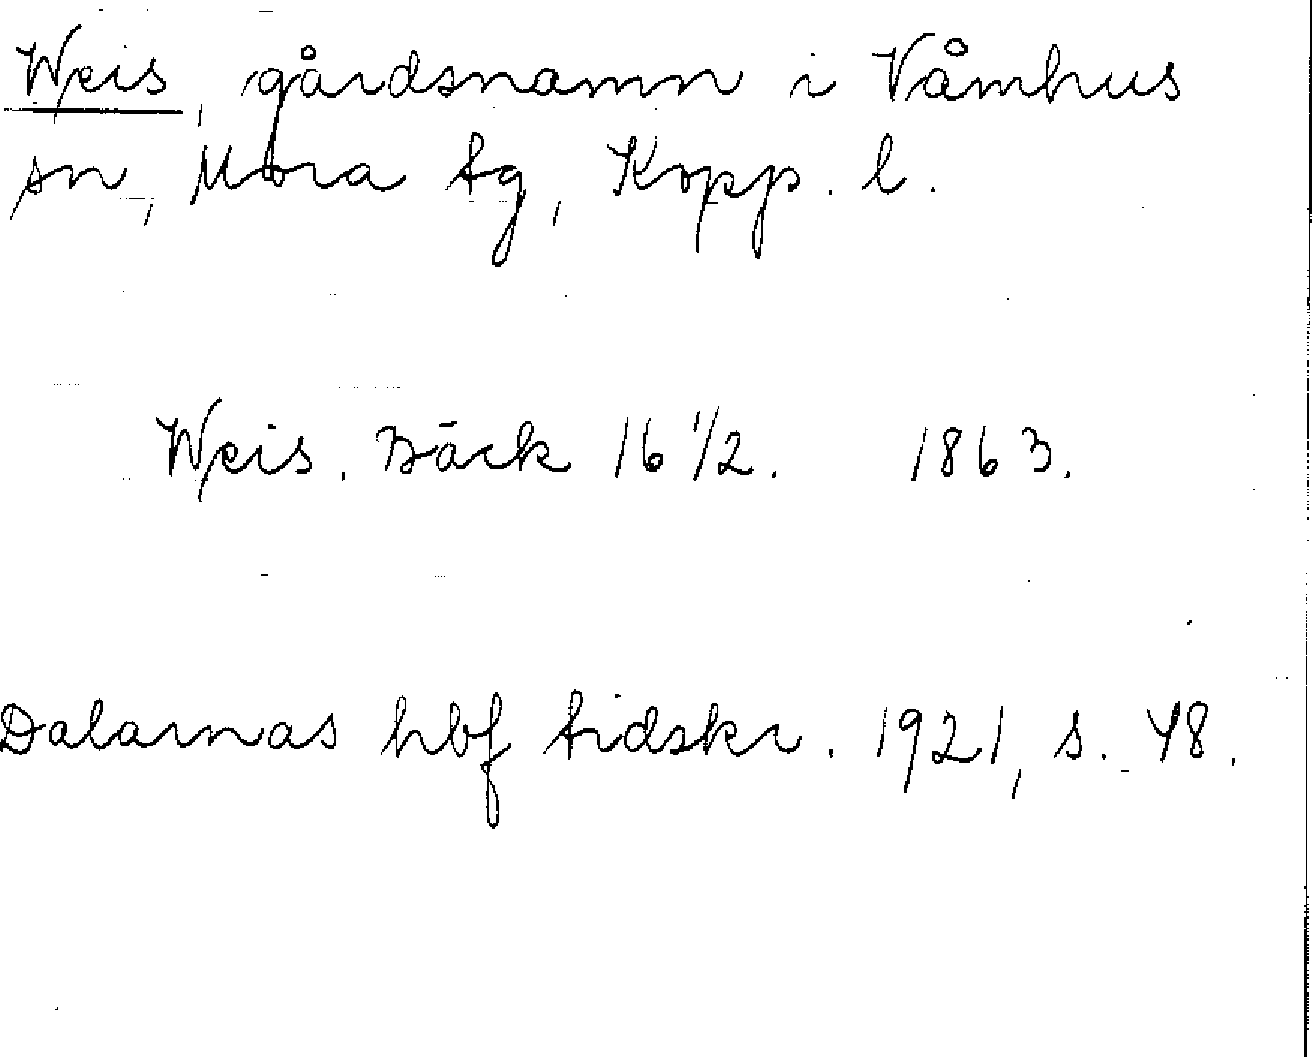 Weis, gårdsnamn i Våmhus
sn, Mora tg, Kopp. l.
Weis. Bäck 16 1/2. 1863.
Dalarnas hbf tidskr. 1921, s. 48.